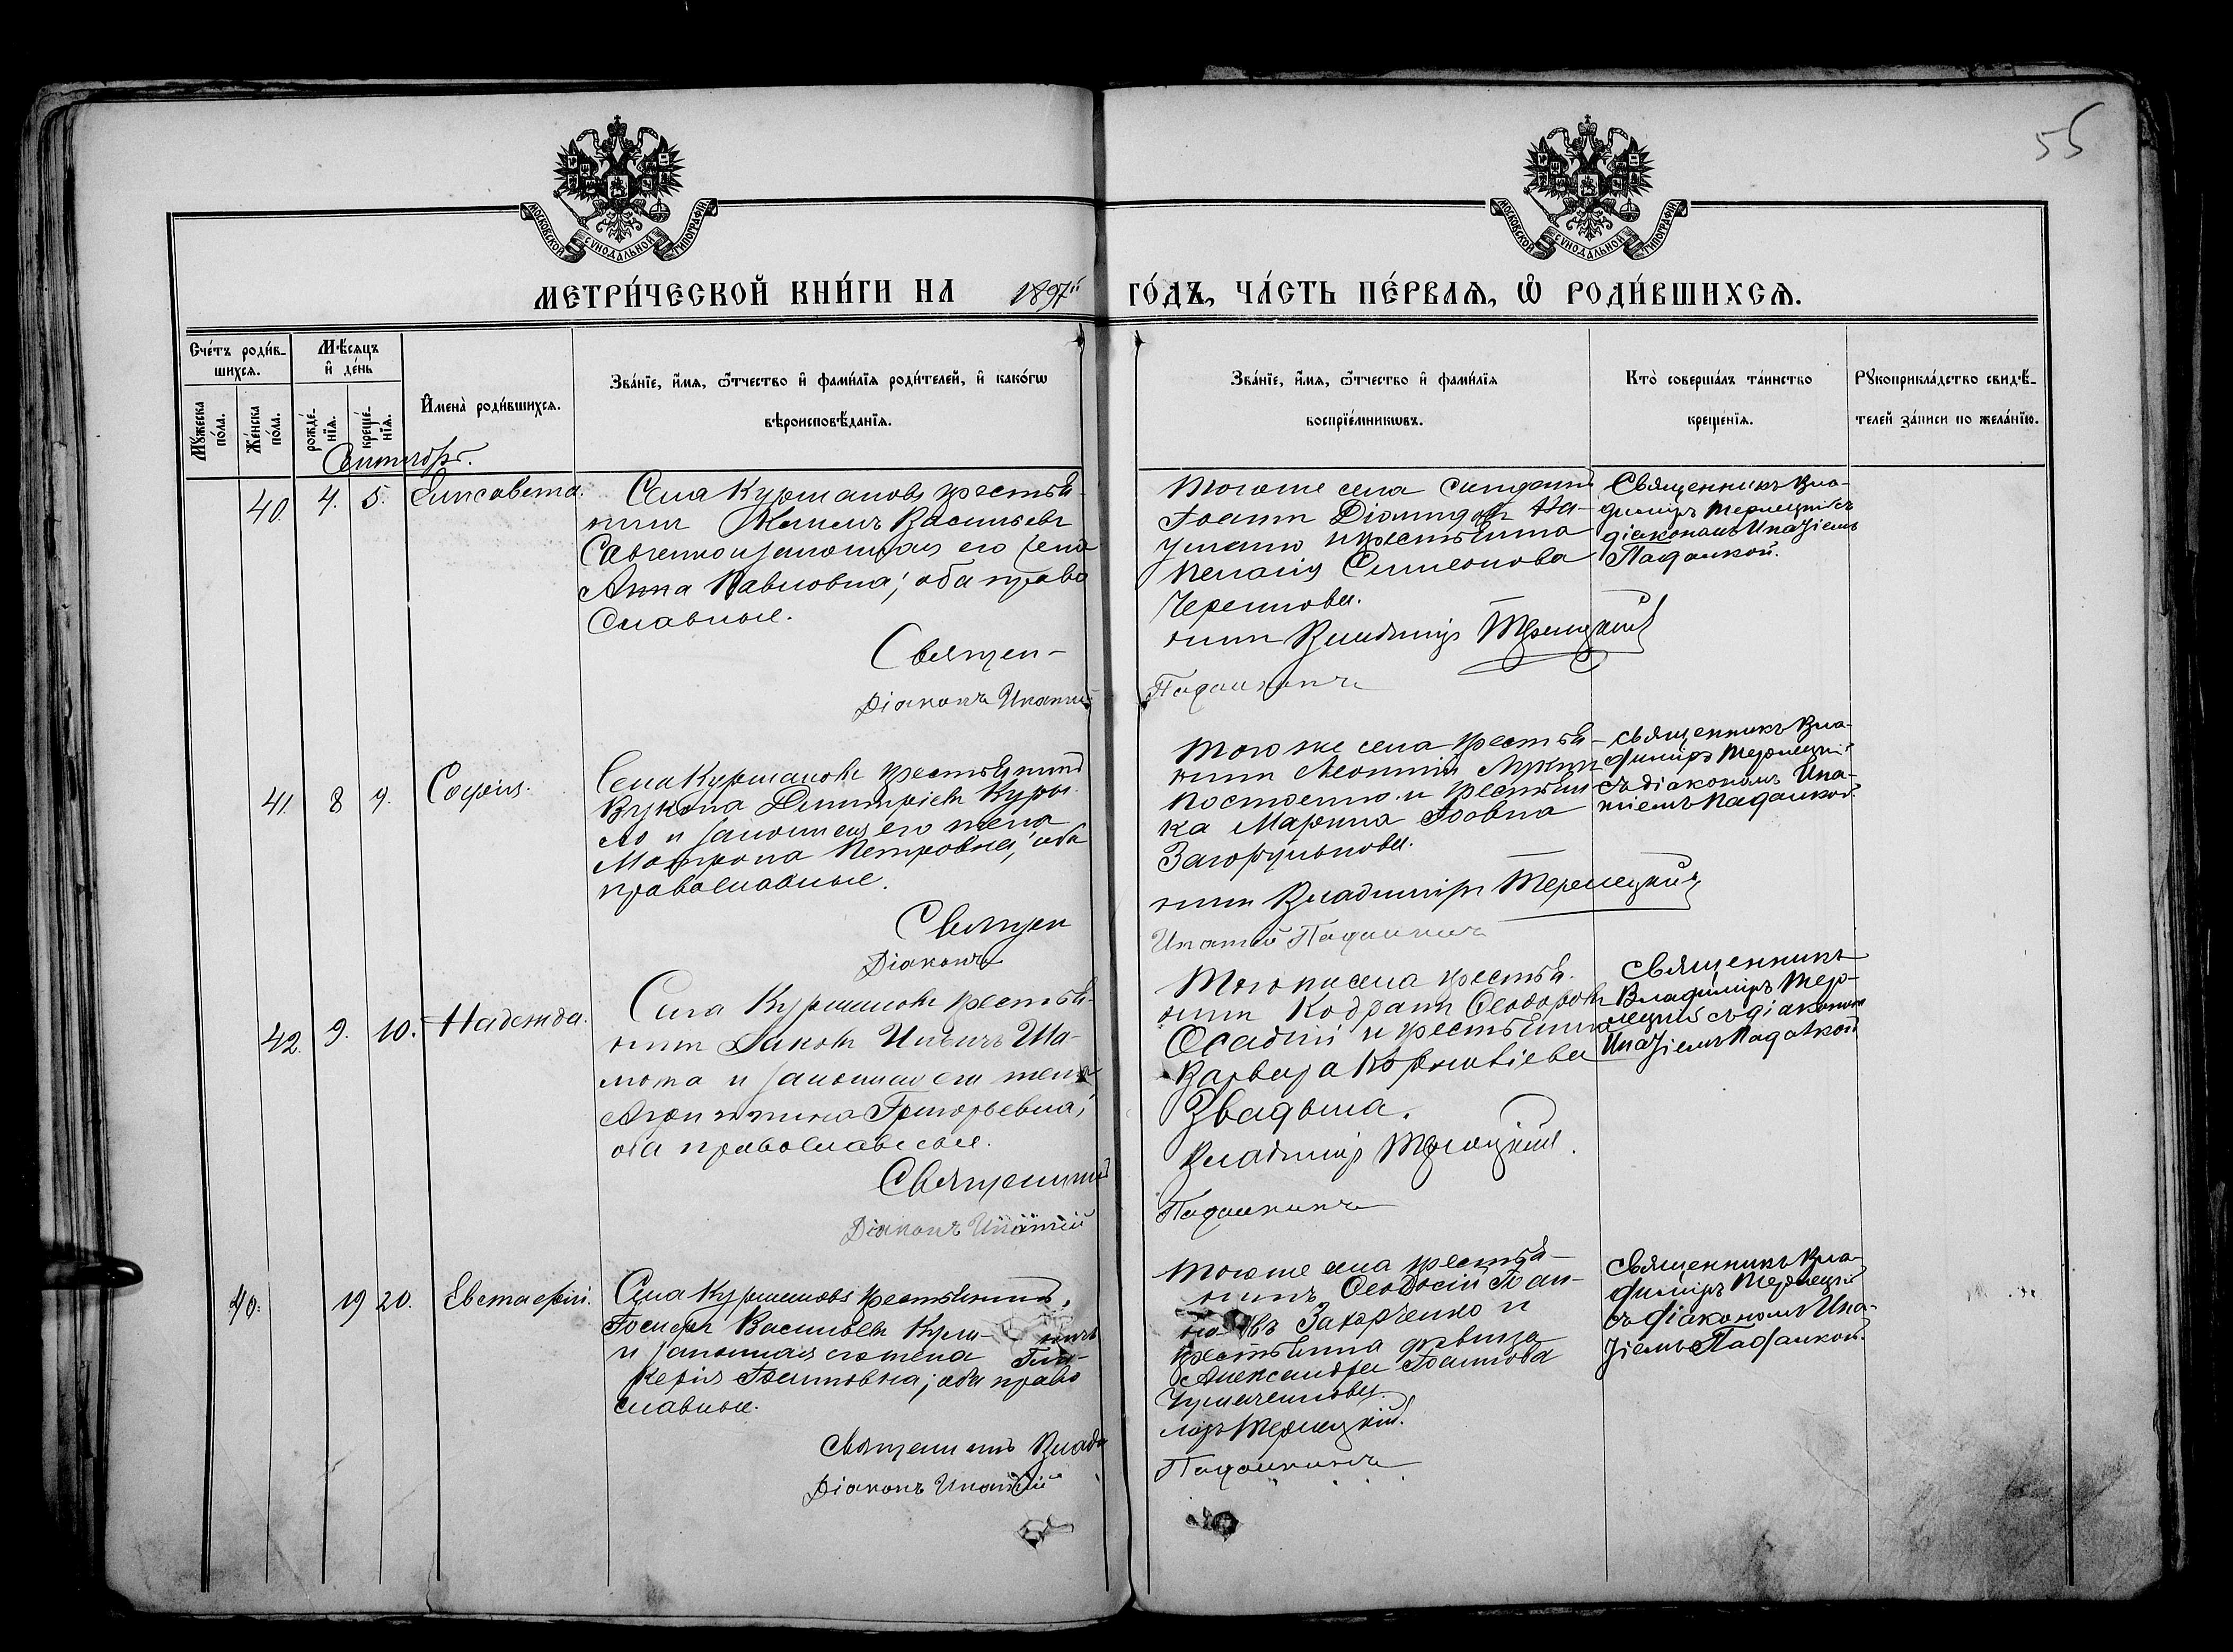 55
МОСКОВСКОЙ СѴНОДАЛЬНОЙ ТИПОГРАФІИ
МОСКОВСКОЙ СѴНОДАЛЬНОЙ ТИПОГРАФІИ
МЕТРИ́ЧЕСКОЙ КНИ́ГИ НА 1897й ГО́ДЪ, ЧА́СТЬ ПЕ́РВАѦ, Ѽ РОДИ́ВШИХСѦ.
Сче́тъ роди́в-
шихсѧ.
Мꙋ́жеска
по́ла.
Же́нска
по́ла.
Мѣ́сяцъ
и҆ де́нь
рожде́-
нїѧ.
креще́-
нїѧ.
И҆мена̀ роди́вшихсѧ.
Зва́нїе, и҆́мѧ, ѻ҆́тчество и҆ фами́лїѧ роди́телей, и҆ како́гѡ
вѣроисповѣ́данїѧ.
Зва́нїе, и҆́мѧ, ѻ҆́тчество и҆ фами́лїѧ
воспрїе́мникѡвъ.
Кто̀ соверша́лъ та́инство
креще́нїѧ.
Рꙋкоприкла́дство свидѣ́-
телей за́писи по жела́нїю.
Сентябрь.
40. 4. 5. Елисавета.
Села Курмановъ крестья-
нинъ Васильевъ
Савченко и законная его жена
Анна Павловна; оба право
славные.
Священ-
Діаконъ Ипатій
Тогоже села
Іоаннъ
и крестьянка
Пелагія Симеонова
никъ Владиміръ Терлецкій
Падалкинъ
Священникъ Вла-
диміръ Терлецкій съ
діакономъ Ипатіемъ
Падалкой.
41. 8 9. Софія.
Села Курмановъ крестьянинъ
Вукола Димитріевъ
и законная его жена
Матрона Петровна; оба
православные.
Священ
Діаконъ
Того же села крестья-
нинъ Леонтій
и крестьян
ка Марина Іовна
Загорулькова.
никъ Владиміръ Терлецкій
Ипатій Падалкинъ
священникъ Вла-
диміръ Терлецкій
съ діакономъ Ипа-
тіемъ Падалкой.
42. 9. 10. Надежда.
Села Курмановъ крестья-
нинъ Яковъ Ильичъ Ша-
мота и законная его жена
Агриппина Григорьевна;
оба православные.
Священникъ
Діаконъ Ипатій
Того же села крестья-
нинъ Кодратъ Ѳеодоровъ
Осадчій и крестьянка
Варвара
Звадыма.
Владиміръ Терлецкій.
Падалкинъ
священникъ
Владиміръ Тер-
лецкій съ діакономъ
Ипатіемъ Падалкой
40. 19 20. Евстафій.
Села Курмановъ крестьянинъ
Іосифъ Васильевъ
и законная его жена Гли-
керія Іоанновна; оба право
славные.
Священникъ Влади
Діаконъ Ипатій
Тогоже села крестья-
нинъ Ѳеодосій Іоан-
новъ Захарченко и
крестьянка дѣвица
Александра Іоаннова
міръ Терлецкій.
Падалкинъ
священникъ Вла-
диміръ Терлецкій
съ діакономъ Ипа-
тіемъ Падалкой.